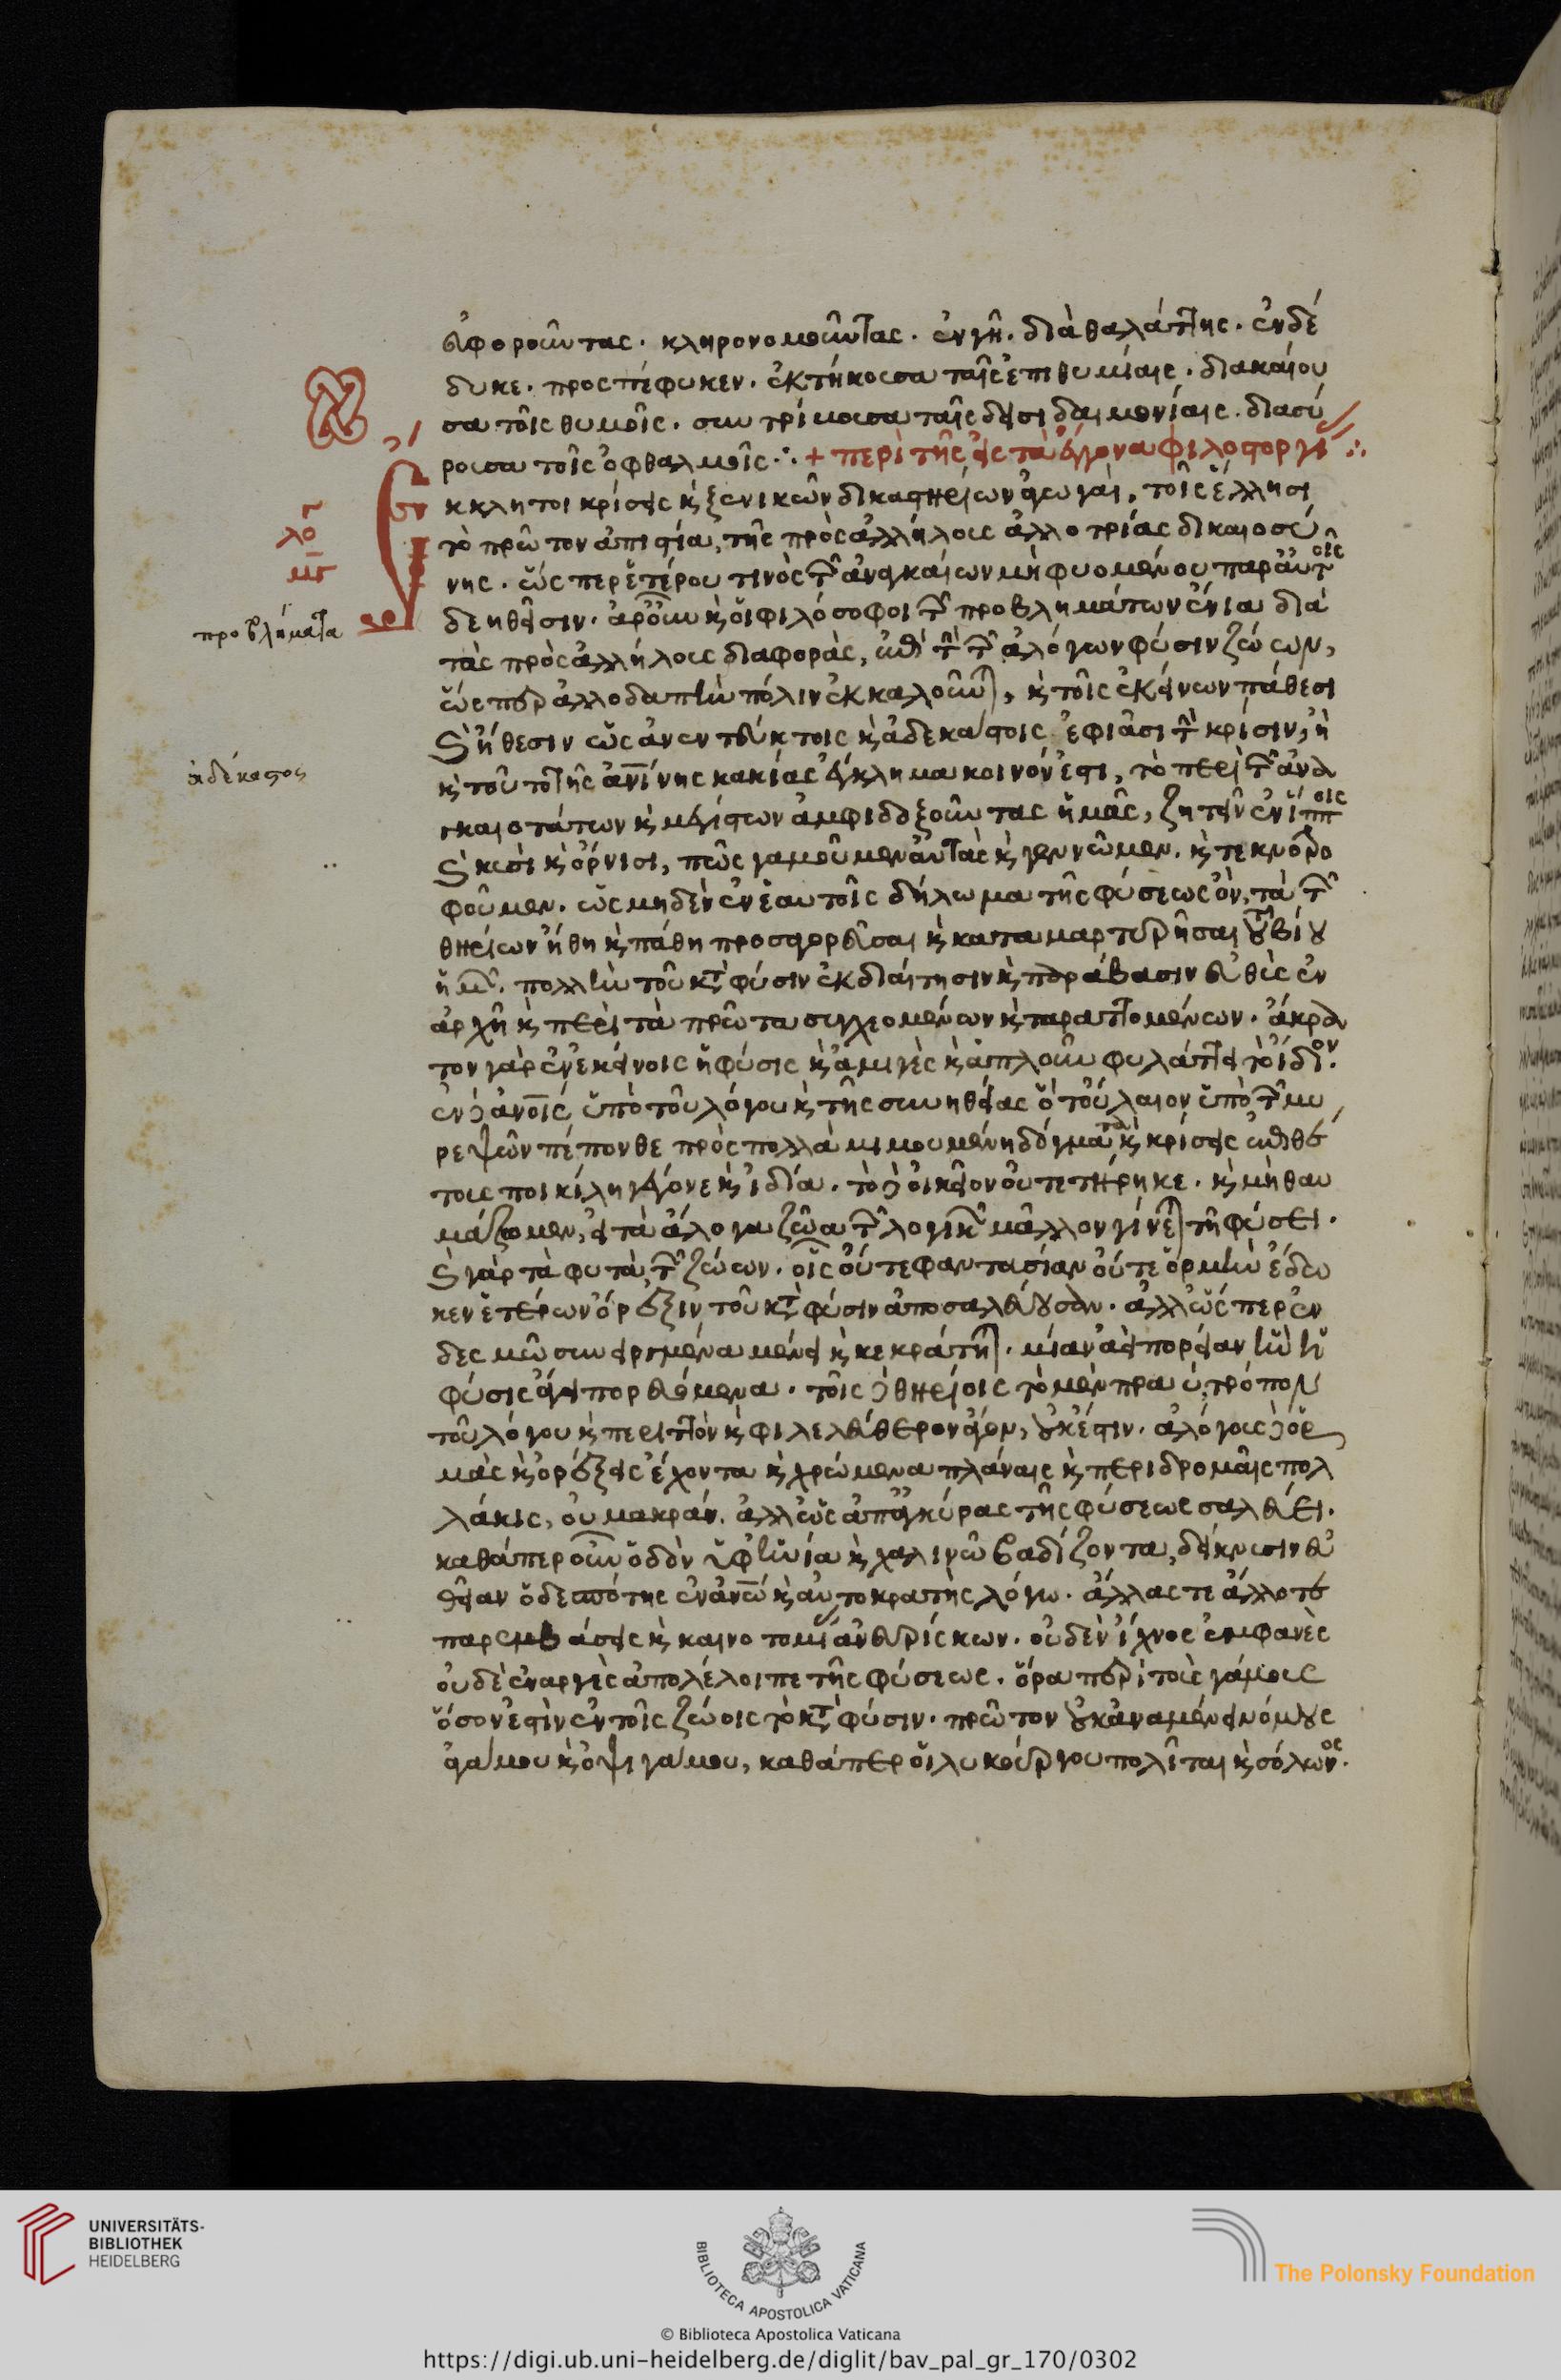 εὐφοροῦντας· κληρονομοῦντας· ἐν γῆ· διὰ θαλάττης· ἐνδέ
δυκε· προσπέφυκεν· ἐκτήκουσα ταῖς ἐπιθυμίαις· διακαίου
σα τοῖς θυμοῖς· συντρίβουσα ταῖς δεισιδαιμονίαις· διασύ
ρουσα τοῖς ὀφθαλμοῖς ∴ + περὶ τῆς εἰς τὰ ἔγγονα φιλοστοργίας ∴
Ἔκκλητοι κρίσεις καὶ ξενικῶν δικαστηρίων ἀγωγαὶ, τοῖς ἕλλησι
τὸ πρῶτον ἀπιστία, τῆς πρὸς ἀλλήλους ἀλλοτρίας δικαιοσύ
νης· ὥσπερ ἑτέρου τινὸς τῶν ἀναγκαίων μὴ φυομένου παρ' αὐτοῖς
δεηθεῖσιν· ἆρ' οὖν καὶ οἱ φιλόσοφοι τῶν προβλημάτων ἔνια διὰ
προβλήματα
τὰς πρὸς ἀλλήλους διαφορὰς, ἐπὶ τὴν τῶν ἀλόγων φύσιν ζώων,
ὥσπερ ἀλλοδαπὴν πόλιν ἐκκαλοῦνται, καὶ τοῖς ἐκείνων πάθεσι
καὶ ἤθεσιν ὡς ἀνεντεύκτοις καὶ ἀδεκάστοις ἐφιᾶσι τὴν κρίσιν, ἢ
ἀδέκαστος
καὶ τοῦτο τῆς ἀνθρωπίνης κακίας ἔγκλημα κοινόν ἐστι, τὸ περὶ τῶν ἀναγ
καιοτάτων καὶ μεγίστων ἀμφιδοξοῦντας ἡμᾶς, ζητεῖν ἐν ἵπποις
καὶ κυσὶ καὶ ὄρνισι, πῶς γαμοῦμεν αὐτὰς καὶ γεννῶμεν, καὶ τεκνοτρο
φοῦμεν· ὡς μηδὲν ἐν ἑαυτοῖς δήλωμα τῆς φύσεως ὂν, τὰ τῶν
θηρίων ἤθη καὶ πάθη προσαγορεῦσαι καὶ καταμαρτυρῆσαι τοῦ βίου
ἡμῶν· πολλὴν τοῦ κατὰ φύσιν ἐκδιαίτησιν καὶ παράβασιν εὐθὺς ἐν
ἀρχῇ καὶ περὶ τὰ πρῶτα συγχεομένων καὶ ταραττομένων· ἄκρα
τον γὰρ ἐν ἐκείνοις ἡ φύσις καὶ ἀμιγὲς καὶ ἁπλοῦν φυλάττει τὸ ἴδιον·
ἐν δὲ ἀνθρώποις ὑπὸ τοῦ λόγου καὶ τῆς συνηθείας ὃ τοὔλαιον ὑπὸ τῶν μυ
ρεψῶν πέπονθε πρὸς πολλὰ μιγνυμένη δόγματα καὶ κρίσεις ἐπιθέ
τους ποικίλη γέγονε καὶ ἰδία· τὸ δὲ οἰκεῖον οὐ τετήρηκε· καὶ μὴ θαυ
μάζωμεν, εἰ τὰ ἄλογα ζῶα τῶν λογικῶν μᾶλλον γίνεται τῆ φύσει·
καὶ γὰρ τὰ φυτὰ τῶν ζώων· οἷς οὔτε φαντασίαν οὔτε ὁρμὴν ἔδω
κεν ἑτέρων ὄρεξιν τοῦ κατὰ φύσιν ἀποσαλεύουσαν· ἀλλ' ὥσπερ ἐν
δεσμῶ συνειργμένα μένει καὶ κεκράτηται· μίαν ἀεὶ πορείαν ἣν ἡ
φύσις ἄγει πορευόμενα· τοῖς δὲ θηρίοις τὸ μὲν πολύτροπον
τοῦ λόγου καὶ περιττὸν καὶ φιλελεύθερον ἄγαν, οὐκ ἔστιν· ἀλόγους δὲ ὁρ
μὰς καὶ ὀρέξεις ἔχοντα καὶ χρώμενα πλάναις καὶ περιδρομαῖς πολ
λάκις, οὐ μακρὰν, ἀλλ' ὡς ἀπ' ἀγκύρας τῆς φύσεως σαλεύει·
καθάπερ οὖν ὁδὸν ὑφ' ἡνία καὶ χαλινῶ βαδίζοντα, δείκνυσιν εὐ
θεῖαν ὁ δεσπότης ἐν ἀνθρώπω καὶ αὐτοκρατὴς λόγω· ἄλλας τε ἄλλοτε
παρεμβάσεις καὶ καινοτομίας ἀνευρίσκων· οὐδὲν ἴχνος ἐμφανὲς
οὐδὲ ἐναργὲς ἀπολέλοιπε τῆς φύσεως· ὅρα περὶ τοὺς γάμους
ὅσον ἐστὶν ἐν τοῖς ζώοις τὸ κατὰ φύσιν· πρῶτον οὐκ ἀναμένει νόμους
ἀγάμου καὶ ὀψιγάμου, καθάπερ οἱ λυκούργου πολῖται καὶ σόλωνος·
UNIVERSITÄTS-
BIBLIOTHEK
HEIDELBERG
BIBLIOTECA APOSTOLICA VATICANA
The Polonsky Foundation
© Biblioteca Apostolica Vaticana
https://digi.ub.uni-heidelberg.de/diglit/bav_pal_gr_170/0302